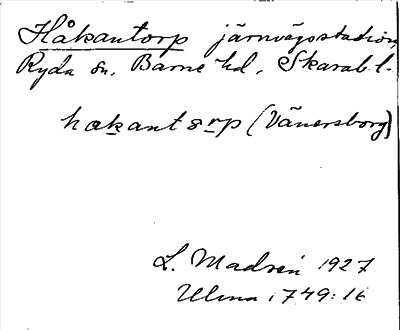 Håkantorp järnvägsstation,
Ryda sn, Barne hd, Skarab. l.
hakantorp (Vänersborg)
L. Madsén 1927
Ulma 1749:16